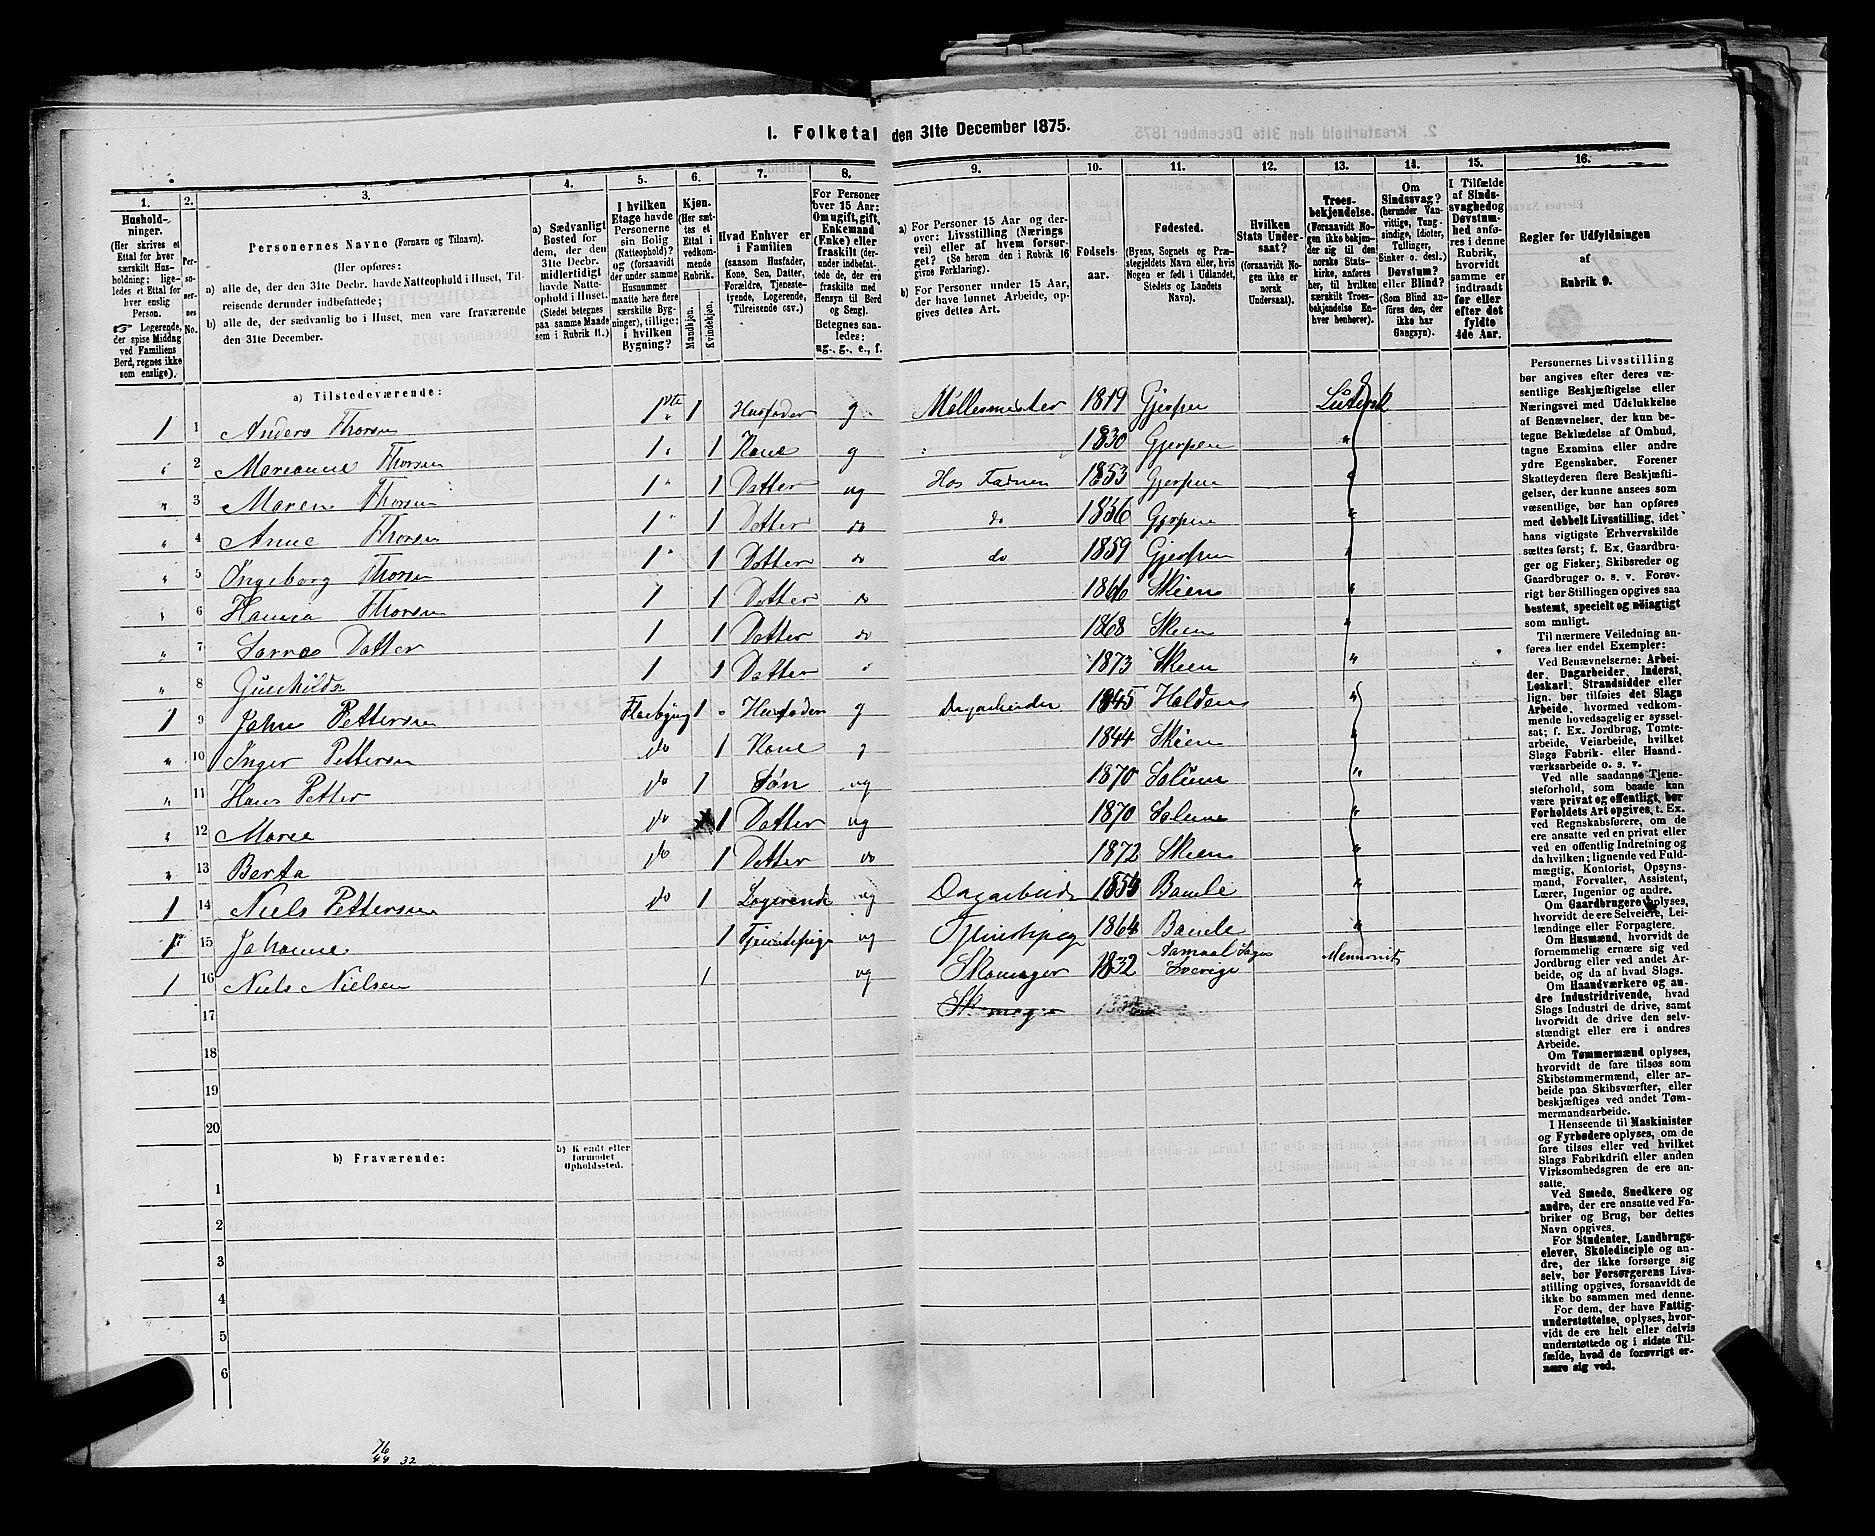 1. Folketal den 31te December 1875.
1. Husholdninger. (Her skrives et Ettal for hver særskilt Husholdning; ligeledes et Ettal for hver enslig Person. Logerende, der spise Middag ved Familiens Bord, regnes ikke som enslige).
2. Personernes No.
3. Personernes Navne (Fornavn og Tilnavn).
(Her opføres:
a) alle de, der den 31te Decbr. havde Natteophold i Huset, Tilreisende derunder indbefattede;
b) alle de, der sædvanlig bo i Huset, men vare fraværende den 31te December.
4. a) Sædvanligt Bosted for dem, der den 31te Decbr. midlertidigt havde Natteophold i Huset. (Stedet betegnes paa samme Maade som i Rubrik 11.)
5. I hvilken Etage havde Personerne sin Bolig (Natteophold)? og (forsaavidt der under samme Husnummer maatte høre flere særskilte Bygninger), tillige: i hvilken Bygning?
6. Kjøn. (Her sættes et Ettal i vedkommende Rubrik. Mandkjøn. Kvindekjøn.
7. Hvad Enhver er i Familien (saasom Husfader, Kone, Søn, Datter, Forældre, Tjenestetyende, Logerende, Tilreisende osv.)
8. For Personer over 15 Aar: Om ugift, gift, Enkemand (Enke) eller fraskilt (derunder indbefattede de, der ere fraskilte med Hensyn til Bord og Seng). Betegnes saaledes: ug., g., e., f.
9. a) For Personer 15 Aar og derover: Livsstilling (Næringsvei) eller af hvem forsørget? (Se herom den i Rubrik 16 givne Forklaring).
b) For Personer under 15 Aar, der have lønnet Arbeide, opgives dettes Art.
10. Fødselsaar.
11. Fødested. (Byens, Sognets og Præstegjeldets Navn eller, hvis Nogen er født i Udlandet, Stedets og Landets Navn).
12. Hvilken Stats Undersaat? (forsaavidt Nogen ikke er norsk Undersaat).
13. Troesbekjendelse. (Forsaavidt Nogen ikke bekjender sig til den norske Statskirke, anføres her, til hvilken særskilt Troesbekjendelse Enhver henhører).
14. Om Sindssvag? (herunder Vanvittige, Tungsindige, Idioter, Tullinger, Sinker o. desl.) Døvstum? eller Blind? (Som Blind anføres den, der ikke har Gangsyn).
15. I Tilfælde af Sindssvaghed og Døvstumhed anføres i denne Rubrik, hvorvidt samme er indtraadt før eller efter det fyldte 4de Aar.
16. Regler for Udfyldningen af Rubrik 9.
a) Tilstedeværende:
1 1 Anders Thorsen 1 1 Husfader g Møllermester 1819 Gjerpen Luthersk
" 2 Marianne Thorsen 1 " 1 Kone g 1830 Gjerpen "
" 3 Maren Thorsen 1 " 1 Datter ug Hos Faderen 1853 Gjerpen "
" 4 Anne Thorsen 1 " 1 Datter do do 1856 Gjerpen "
" 5 Ingeborg Thorsen 1 " 1 Datter do do 1859 Gjerpen "
" 6 Hanna Thorsen 1 1 Datter do 1866 Skien "
" 7 Datter 1 1 Datter do 1868 Skien "
" 8 Gunhilda 1 1 Datter 1873 Skien "
1 9 Johan Pettersen 1 Husfader g Dagarbeider 1845 Halden "
" 10 Inger Pettersen do 1 Kone g 1844 Skien "
" 11 Hans Petter do 1 Søn ug 1870 Solum "
" 12 Maren do 1 Datter ug 1870 Solum "
" 13 Berta do 1 Datter do 1872 Skien "
1 14 Niels Pettersen do 1 Logerende ug Dagarbeid Bamle "
15 Johanne 1 Tjenestepige ug Tjenestepige 1864 Bamle "
1 16 Niels Nielsen 1 ug Skomager 1832 Aamaal Sogn Sverige Mennonit
17 Skomager
18
19
20
b) Fraværende:
b) Kjendt eller formodet Opholdssted.
1
2
3
4
5
6
Personernes Livsstilling bør angives efter deres væsentlige Beskjæftigelse eller Næringsvei med Udelukkelse af Benævnelser, der kun betegne Beklædelse af Ombud, tagne Examina eller andre ydre Egenskaber. Forener Skatteyderen flere Beskjæftigelser, der kunne ansees som væsentlige, bør han opføres med dobbelt Livsstilling, idet hans vigtigste Erhvervskilde sættes først; f. Ex. Gaardbruger og Fisker; Skibsreder og Gaardbruger o. s. v. Forøvrigt bør Stillingen opgives saa bestemt, specielt og nøiagtigt som muligt.
Til nærmere Veiledning anføres her endel Exempler:
Ved Benævnelserne: Arbeider, Dagarbeider, Inderst, Løskarl, Strandsidder eller lign. bør tilføies det Slags Arbeide, hvormed vedkommende hovedsagelig er sysselsat; f. Ex. Jordbrug, Tomtearbeide, Veiarbeide, hvilket Slags Fabrik- eller Haandværksarbeide o. s. v.
Ved alle saadanne Tjenesteforhold, som baade kan være privat og offentligt, bør Forholdets Art opgives, t. Ex. ved Regnskabsførere, om de ere ansatte ved en privat eller ved en offentlig Indretning og da hvilken; lignende ved Fuldmægtig, Kontorist, Opsynsmand, Forvalter, Assistent, Lærer, Ingeniør og andre.
Om Gaardbrugere oplyses, hvorvidt de ere Selveiere, Leilændinge eller Forpagtere.
Om Husmænd, hvorvidt de fornemmelig ernære sig ved Jordbrug eller ved andet Arbeide, og da af hvad Slags.
Om Haandværkere og andre Industridrivende, hvad Slags Industri de drive, samt hvorvidt de drive den selvstændigt eller ere i andres Arbeide.
Om Tømmermænd oplyses, hvorvidt de fare tilsøs som Skibstømmermænd, eller arbeide paa Skibsværfter, eller beskjæftiges ved andet Tømmermandsarbeide.
I Henseende til Maskinister og Fyrbødere oplyses, om de fare tilsøs eller ved hvilket Slags Fabrikdrift eller anden Virksomhedsgren de ere ansatte.
Ved Smede, Snedkere og andre, der ere ansatte ved Fabriker og Brug, bør dettes Navn opgives.
For Studenter, Landbrugselever, Skoledisciple og andre, der ikke forsørge sig selv, bør Forsørgerens Livsstilling opgives, forsaavidt de ikke bo sammen med denne.
For dem, der have Fattigunderstøttelse, oplyses, hvorvidt de ere helt eller delvis understøttede og i sidste Tilfælde, hvad de forøvrigt ernære sig ved.
76
44 32